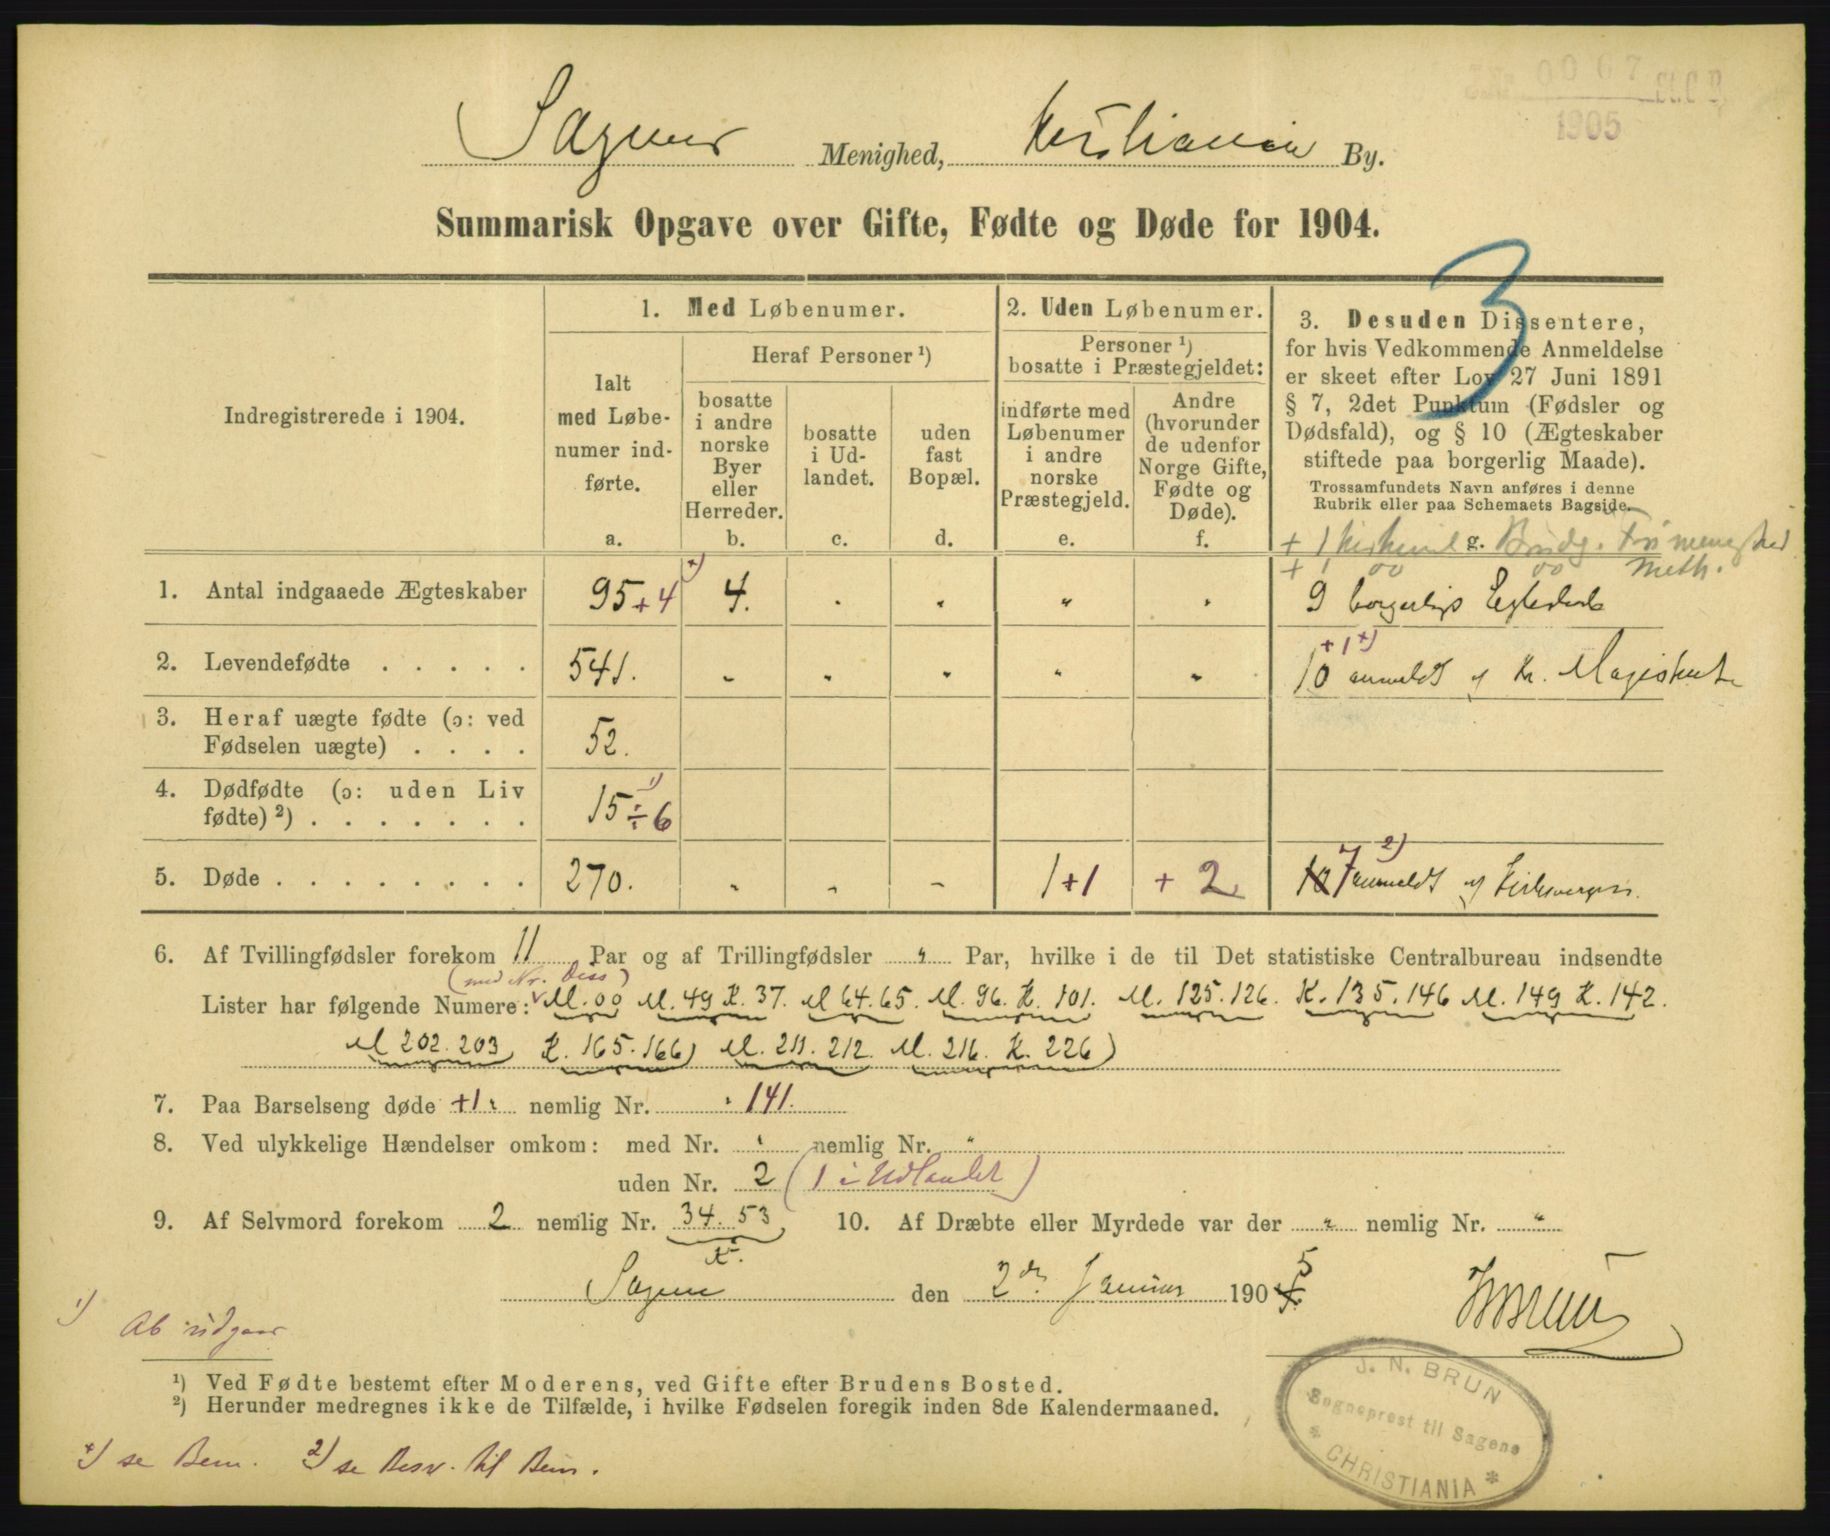 0067
1905
Sagene Menighed, Kristiania By.
Summarisk Opgave over Gifte, Fødte og Døde for 1904.
3
Indregistrerede i 1904.
1. Med Løbenumer.
Ialt med Løbenumer indførte.
a.
Heraf Personer ¹)
bosatte i andre norske Byer eller Herreder.
b.
bosatte i Udlandet.
c.
uden fast Bopæl.
d.
2. Uden Løbenumer.
Personer ¹) bosatte i Præstegjeldet:
indførte med Løbenumer i andre norske Præstegjeld.
e.
Andre (hvorunder de udenfor Norge Gifte, Fødte og Døde).
f.
3. Desuden Dissentere,
for hvis Vedkommende Anmeldelse
er skeet efter Lov 27 Juni 1891
§ 7, 2det Punktum (Fødsler og
Dødsfald), og § 10 (Ægteskaber
stiftede paa borgerlig Maade).
Trossamfundets Navn anføres i denne
Rubrik eller paa Schemaets Bagside.
g.
+ 1 Frimenighed
+ 1 Meth.
1. Antal indgaaede Ægteskaber 95 +4 +) 4. " " " " 9
2. Levendefødte . . . . . 541. " " " " " 10 +1 +) anmeldt Kr. Magistrat
3. Heraf uægte fødte (ɔ: ved
Fødselen uægte) . . . . 52.
4. Dødfødte (ɔ: uden Liv
fødte) ²) . . . . . . . 15 ÷6 ¹)
5. Døde . . . . . . . . 270. " " " 1 +1 + 2 7 ²) anmeldt
6. Af Tvillingfødsler forekom 11 Par og af Trillingfødsler " Par, hvilke i de til Det statistiske Centralbureau indsendte
(med Nr. Diss)
Lister har følgende Numere: M. 00 M. 49 K. 37. M 64. 65. M. 96. K. 101. M. 125. 126. K. 135. 146 M. 149 K. 142.
M 202. 203 K. 165. 166) M. 211. 212. M. 216. K. 226)
7. Paa Barselseng døde +1 nemlig Nr. 141.
8. Ved ulykkelige Hændelser omkom: med Nr. " nemlig Nr. "
uden Nr. 2 (1 i Udlandet)
9. Af Selvmord forekom 2 nemlig Nr. 34. 53 10. Af Dræbte eller Myrdede var der " nemlig Nr. "
K.
Sagene den 2den Januar 1905
JNBrun
¹) Ab udgaar
¹) Ved Fødte bestemt efter Moderens, ved Gifte efter Brudens Bosted.
²) Herunder medregnes ikke de Tilfælde, i hvilke Fødselen foregik inden 8de Kalendermaaned.
+) se Bem. ²) se Besv. til Bem.
J. N. BRUN
Sogneprest til Sagene
* CHRISTIANIA *